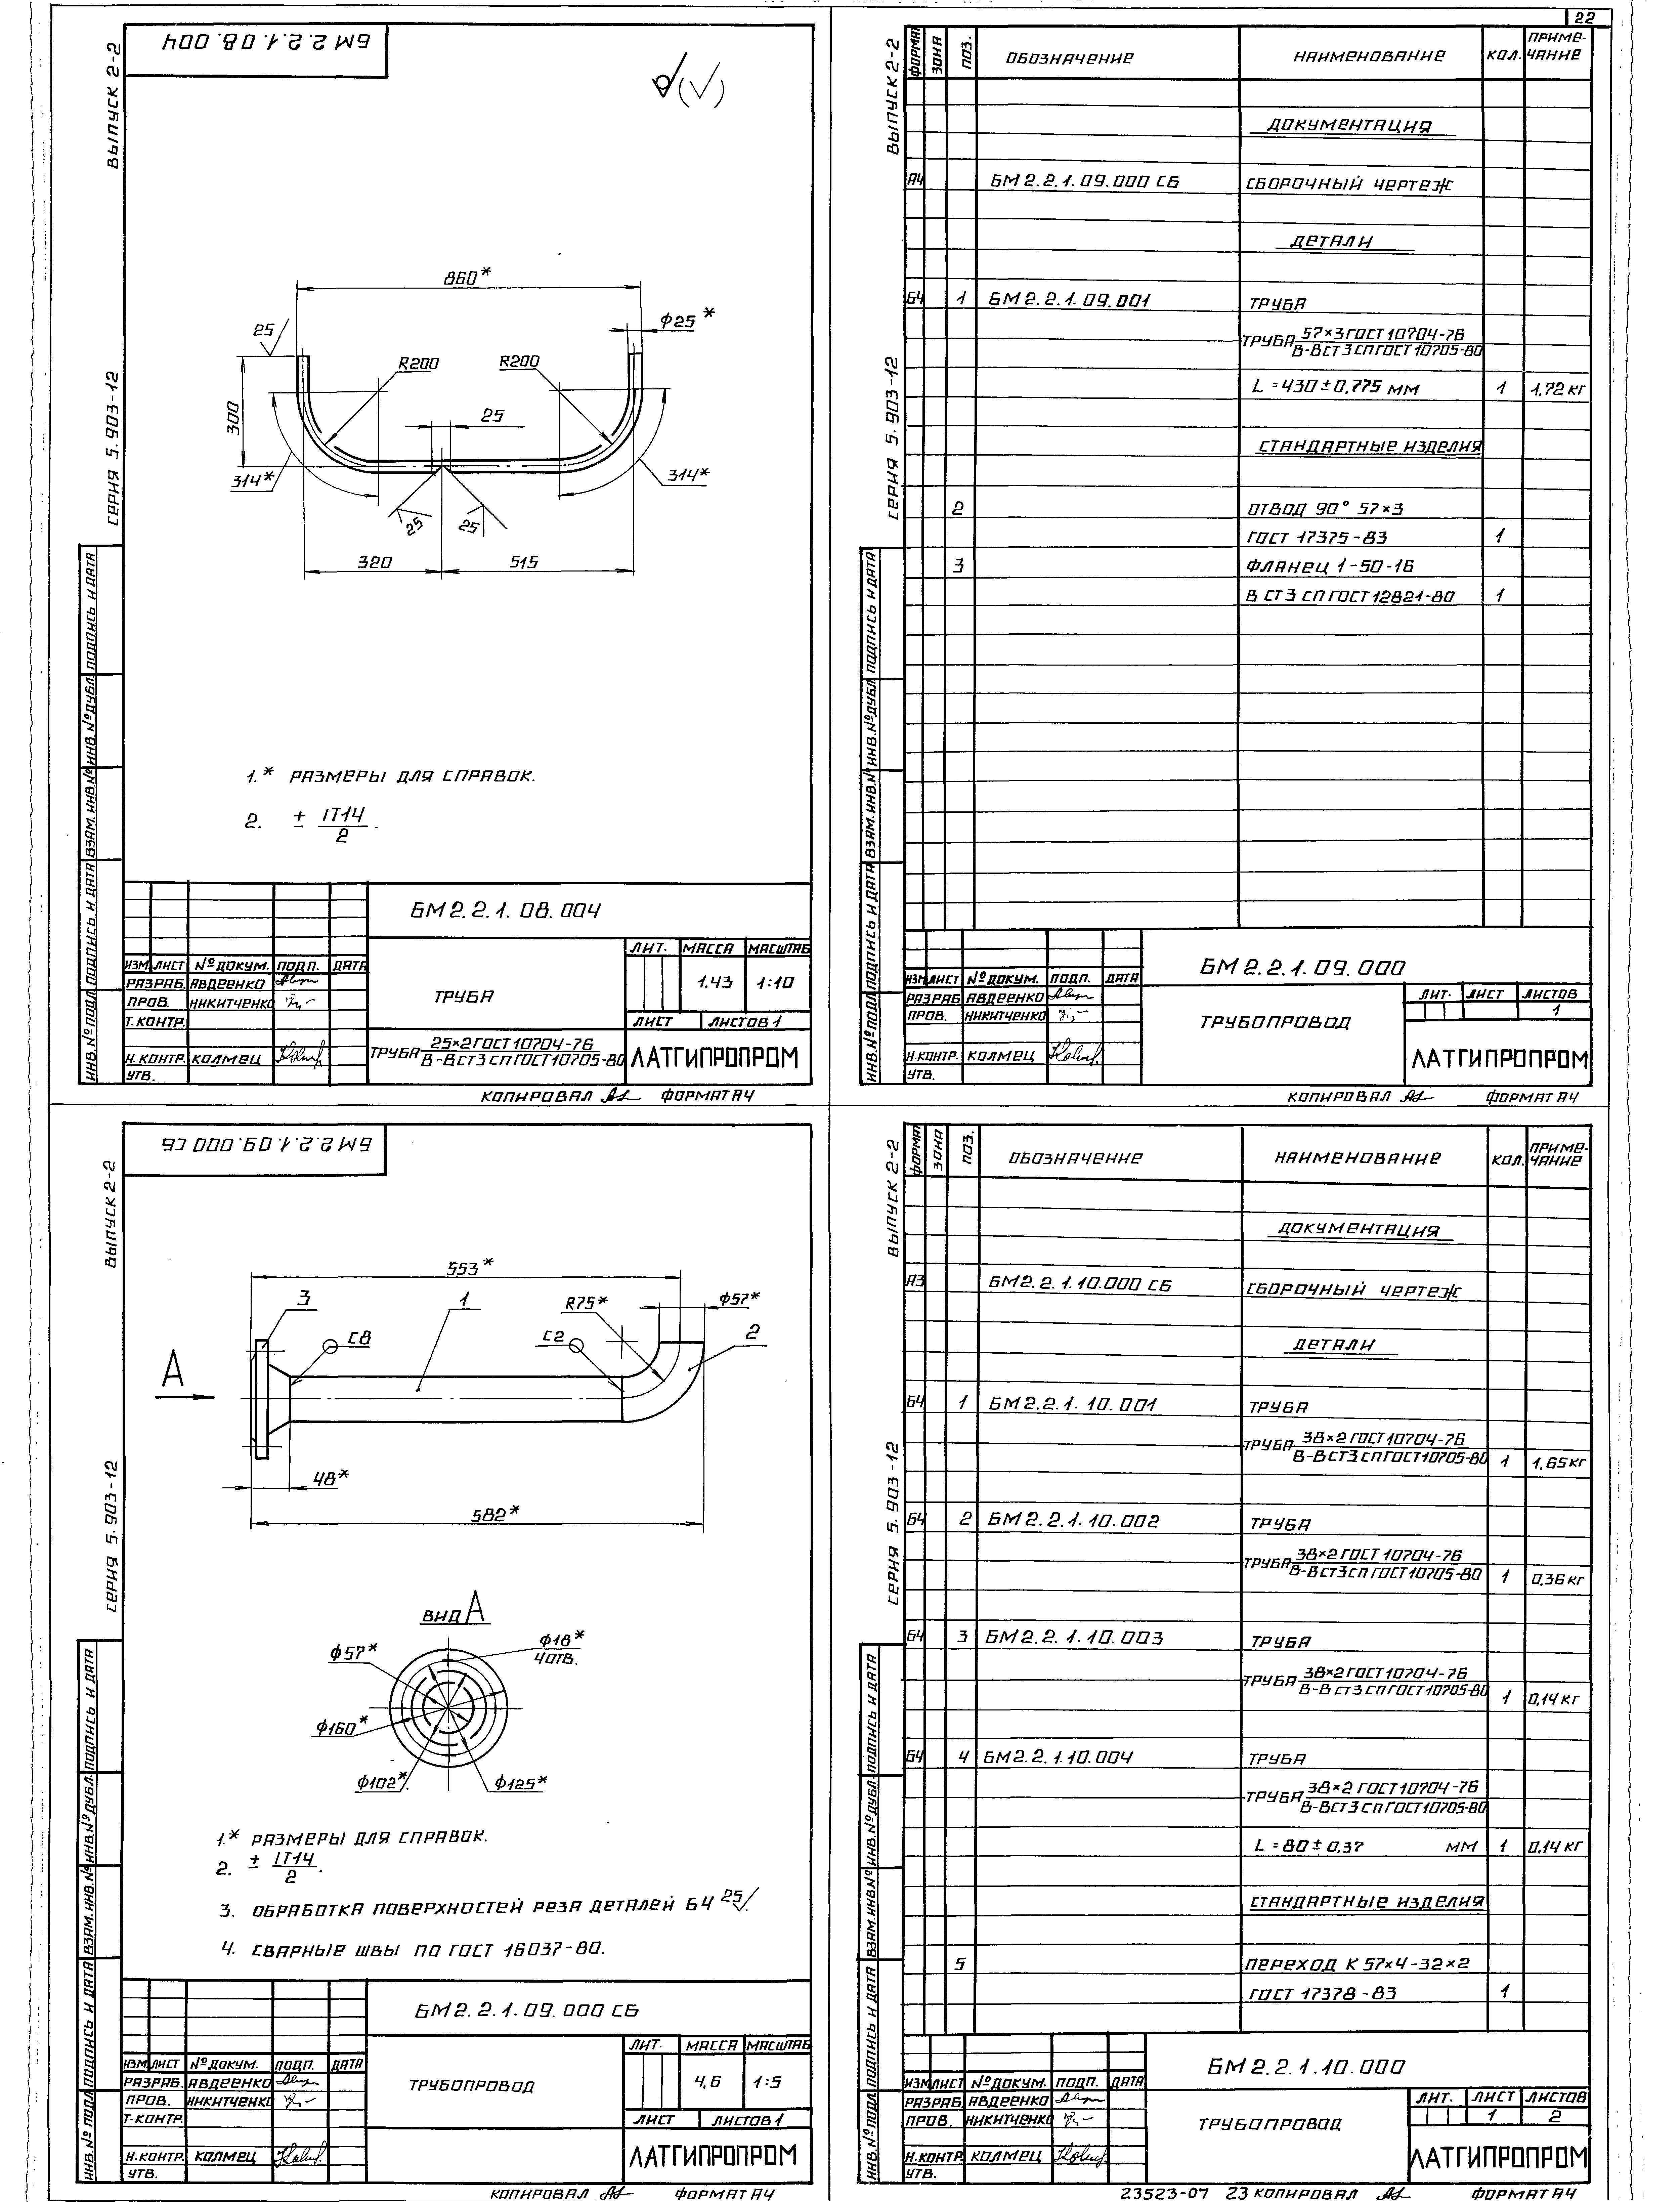 22
БМ 2.2.1.08.004
ВЫПУСК 2-2
СЕРИЯ 5.903-12
860*
25
Ф25*
R200
R200
300
25
314*
314*
25
25
320
515
1.* РАЗМЕРЫ ДЛЯ СПРАВОК.
2. ± IT14/2.
ИНВ.№ ПОДЛ. ПОДПИСЬ И ДАТА ВЗАМ. ИНВ.№ ИНВ.№ ДУБЛ. ПОДПИСЬ И ДАТА
БМ 2.2.1.08.004
ЛИТ. МАССА МАСШТАБ
ИЗМ. ЛИСТ № ДОКУМ. ПОДП. ДАТА
РАЗРАБ. АВДЕЕНКО
ПРОВ. НИКИТЧЕНКО
Т.КОНТР.
Н.КОНТР. КОЛМЕЦ
УТВ.
ТРУБА
1.43 1:10
ЛИСТ ЛИСТОВ 1
ТРУБА 25×2 ГОСТ 10704-76
В-ВСт3сп ГОСТ 10705-80
ЛАТГИПРОПРОМ
КОПИРОВАЛ ФОРМАТ А4
ВЫПУСК 2-2
СЕРИЯ 5.903-12
ФОРМАТ ЗОНА ПОЗ. ОБОЗНАЧЕНИЕ НАИМЕНОВАНИЕ КОЛ. ПРИМЕ-
ЧАНИЕ
ДОКУМЕНТАЦИЯ
А4 БМ 2.2.1.09.000 СБ СБОРОЧНЫЙ ЧЕРТЕЖ
ДЕТАЛИ
Б4 1 БМ 2.2.1.09.001 ТРУБА
ТРУБА 57×3 ГОСТ 10704-76
В-ВСт3сп ГОСТ 10705-80
L=430±0,775 мм 1 1,72 кг
СТАНДАРТНЫЕ ИЗДЕЛИЯ
2 ОТВОД 90° 57×3
ГОСТ 17375-83 1
3 ФЛАНЕЦ 1-50-16
В Ст3 сп ГОСТ 12821-80 1
ИНВ.№ ПОДЛ. ПОДПИСЬ И ДАТА ВЗАМ. ИНВ.№ ИНВ.№ ДУБЛ. ПОДПИСЬ И ДАТА
БМ 2.2.1.09.000
ИЗМ. ЛИСТ № ДОКУМ. ПОДП. ДАТА
РАЗРАБ. АВДЕЕНКО
ПРОВ. НИКИТЧЕНКО
Н.КОНТР. КОЛМЕЦ
УТВ.
ТРУБОПРОВОД
ЛИТ. ЛИСТ ЛИСТОВ
1
ЛАТГИПРОПРОМ
КОПИРОВАЛ ФОРМАТ А4
БМ 2.2.1.09.000 СБ
ВЫПУСК 2-2
СЕРИЯ 5.903-12
553*
3
1
R75*
Ф57*
С8
С2
2
А
48*
582*
ВИД А
Ф57*
Ф18*
4 ОТВ.
Ф160*
Ф102*
Ф125*
1.* РАЗМЕРЫ ДЛЯ СПРАВОК.
2. ± IT14/2.
3. ОБРАБОТКА ПОВЕРХНОСТЕЙ РЕЗА ДЕТАЛЕЙ Б4 25.
4. СВАРНЫЕ ШВЫ ПО ГОСТ 16037-80.
ИНВ.№ ПОДЛ. ПОДПИСЬ И ДАТА ВЗАМ. ИНВ.№ ИНВ.№ ДУБЛ. ПОДПИСЬ И ДАТА
БМ 2.2.1.09.000 СБ
ЛИТ. МАССА МАСШТАБ
ИЗМ. ЛИСТ № ДОКУМ. ПОДП. ДАТА
РАЗРАБ. АВДЕЕНКО
ПРОВ. НИКИТЧЕНКО
Т.КОНТР.
Н.КОНТР. КОЛМЕЦ
УТВ.
ТРУБОПРОВОД
4,6 1:5
ЛИСТ ЛИСТОВ 1
ЛАТГИПРОПРОМ
КОПИРОВАЛ ФОРМАТ А4
ВЫПУСК 2-2
СЕРИЯ 5.903-12
ФОРМАТ ЗОНА ПОЗ. ОБОЗНАЧЕНИЕ НАИМЕНОВАНИЕ КОЛ. ПРИМЕ-
ЧАНИЕ
ДОКУМЕНТАЦИЯ
А3 БМ 2.2.1.10.000 СБ СБОРОЧНЫЙ ЧЕРТЕЖ
ДЕТАЛИ
Б4 1 БМ 2.2.1.10.001 ТРУБА
ТРУБА 38×2 ГОСТ 10704-76
В-ВСт3сп ГОСТ 10705-80 1 1,65 кг
Б4 2 БМ 2.2.1.10.002 ТРУБА
ТРУБА 38×2 ГОСТ 10704-76
В-ВСт3сп ГОСТ 10705-80 1 0,36 кг
Б4 3 БМ 2.2.1.10.003 ТРУБА
ТРУБА 38×2 ГОСТ 10704-76
В-ВСт3сп ГОСТ 10705-80 1 0,14 кг
Б4 4 БМ 2.2.1.10.004 ТРУБА
ТРУБА 38×2 ГОСТ 10704-76
В-ВСт3сп ГОСТ 10705-80
L=80±0,37 мм 1 0,14 кг
СТАНДАРТНЫЕ ИЗДЕЛИЯ
5 ПЕРЕХОД К 57×4-32×2
ГОСТ 17378-83 1
ИНВ.№ ПОДЛ. ПОДПИСЬ И ДАТА ВЗАМ. ИНВ.№ ИНВ.№ ДУБЛ. ПОДПИСЬ И ДАТА
БМ 2.2.1.10.000
ИЗМ. ЛИСТ № ДОКУМ. ПОДП. ДАТА
РАЗРАБ. АВДЕЕНКО
ПРОВ. НИКИТЧЕНКО
Н.КОНТР. КОЛМЕЦ
УТВ.
ТРУБОПРОВОД
ЛИТ. ЛИСТ ЛИСТОВ
1 2
ЛАТГИПРОПРОМ
23523-07 23 КОПИРОВАЛ ФОРМАТ А4